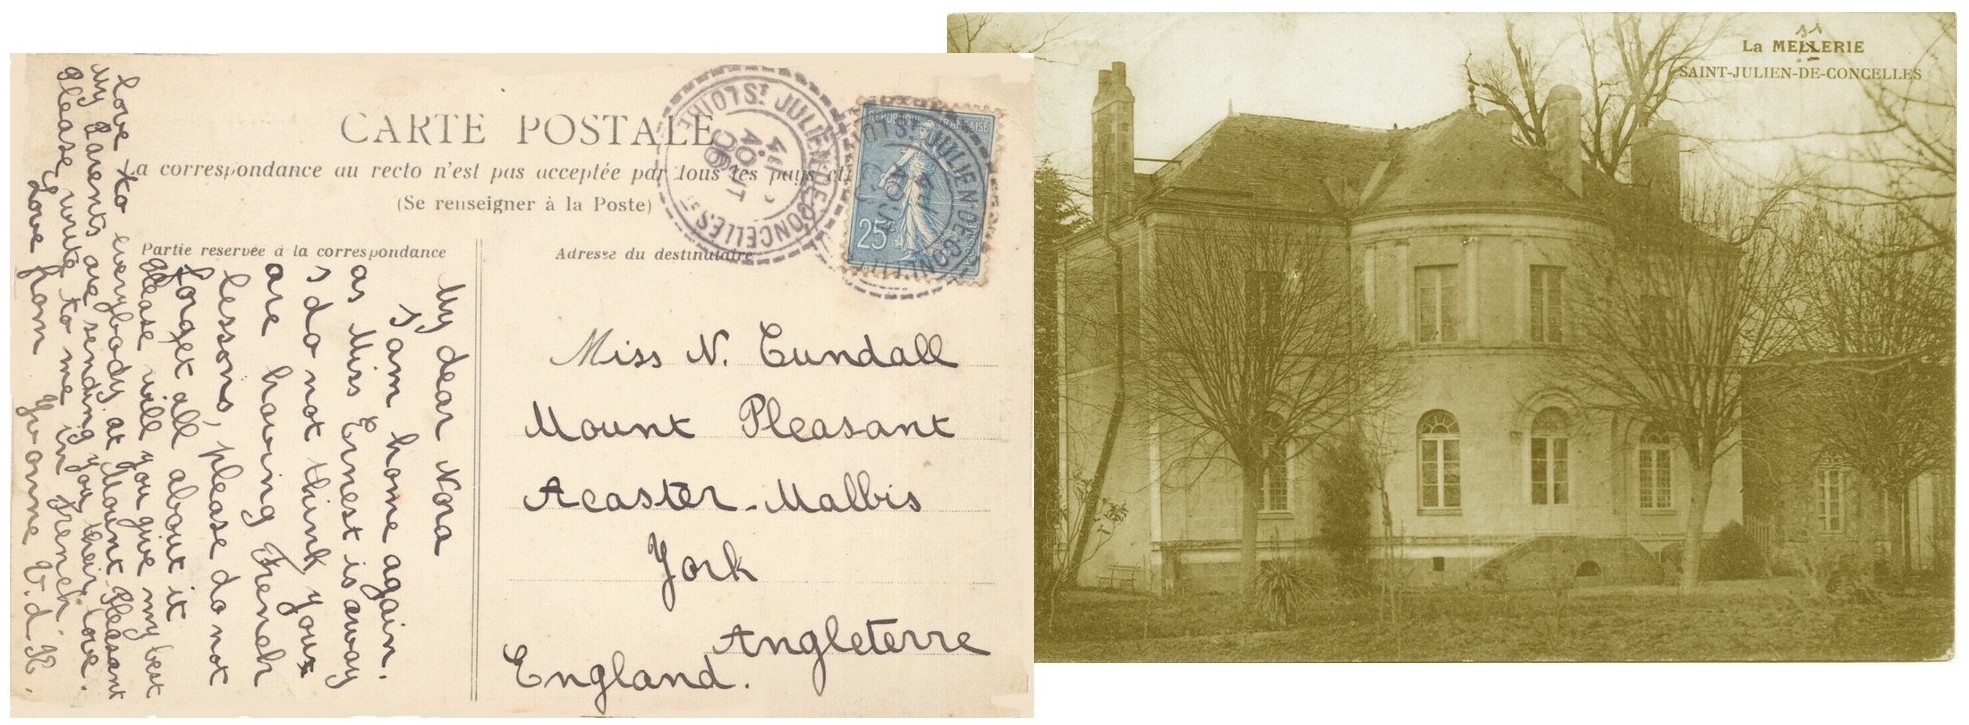 CARTE POSTALE
La correspondance au recto n'est pas acceptée par tous les pays
(Se renseigner à la Poste)
Partie reservée à la correspondance
Adresse du destinataire
My dear Nora
I am home again.
as Miss Ernest is away
I do not think you
are having French
lessons, please do not
forget all about it
please will you give my best
love to everybody at Mount Pleasant
My Parents are sending you their love.
Please write to me in French
Love from Yvonne V. d. R.
ST JULIEN-DE-CONCELLES
LOIRE
4E
AOUT
06
REPUBLIQUE FRANÇAISE
25
ST JULIEN-DE-CONCELLES
Miss N. Cundall
Mount Pleasant
Acaster-Malbis
York
Angleterre
England.
La MELLERIE
SAINT-JULIEN-DE-CONCELLES